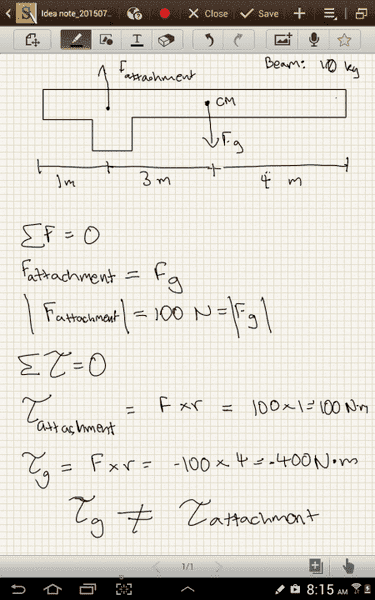 Idea note_201507...
Close
Save
Fattachment
Beam: 10 kg
CM
Fg
1m
3 m
4 m
ΣF = 0
Fattachment = Fg
|Fattachment| = 100 N = |Fg|
Στ = 0
τattachment = F × r = 100 × 1 = 100 N·m
τg = F × r = -100 × 4 = -400 N·m
τg ≠ τattachment
1/1
8:15 AM